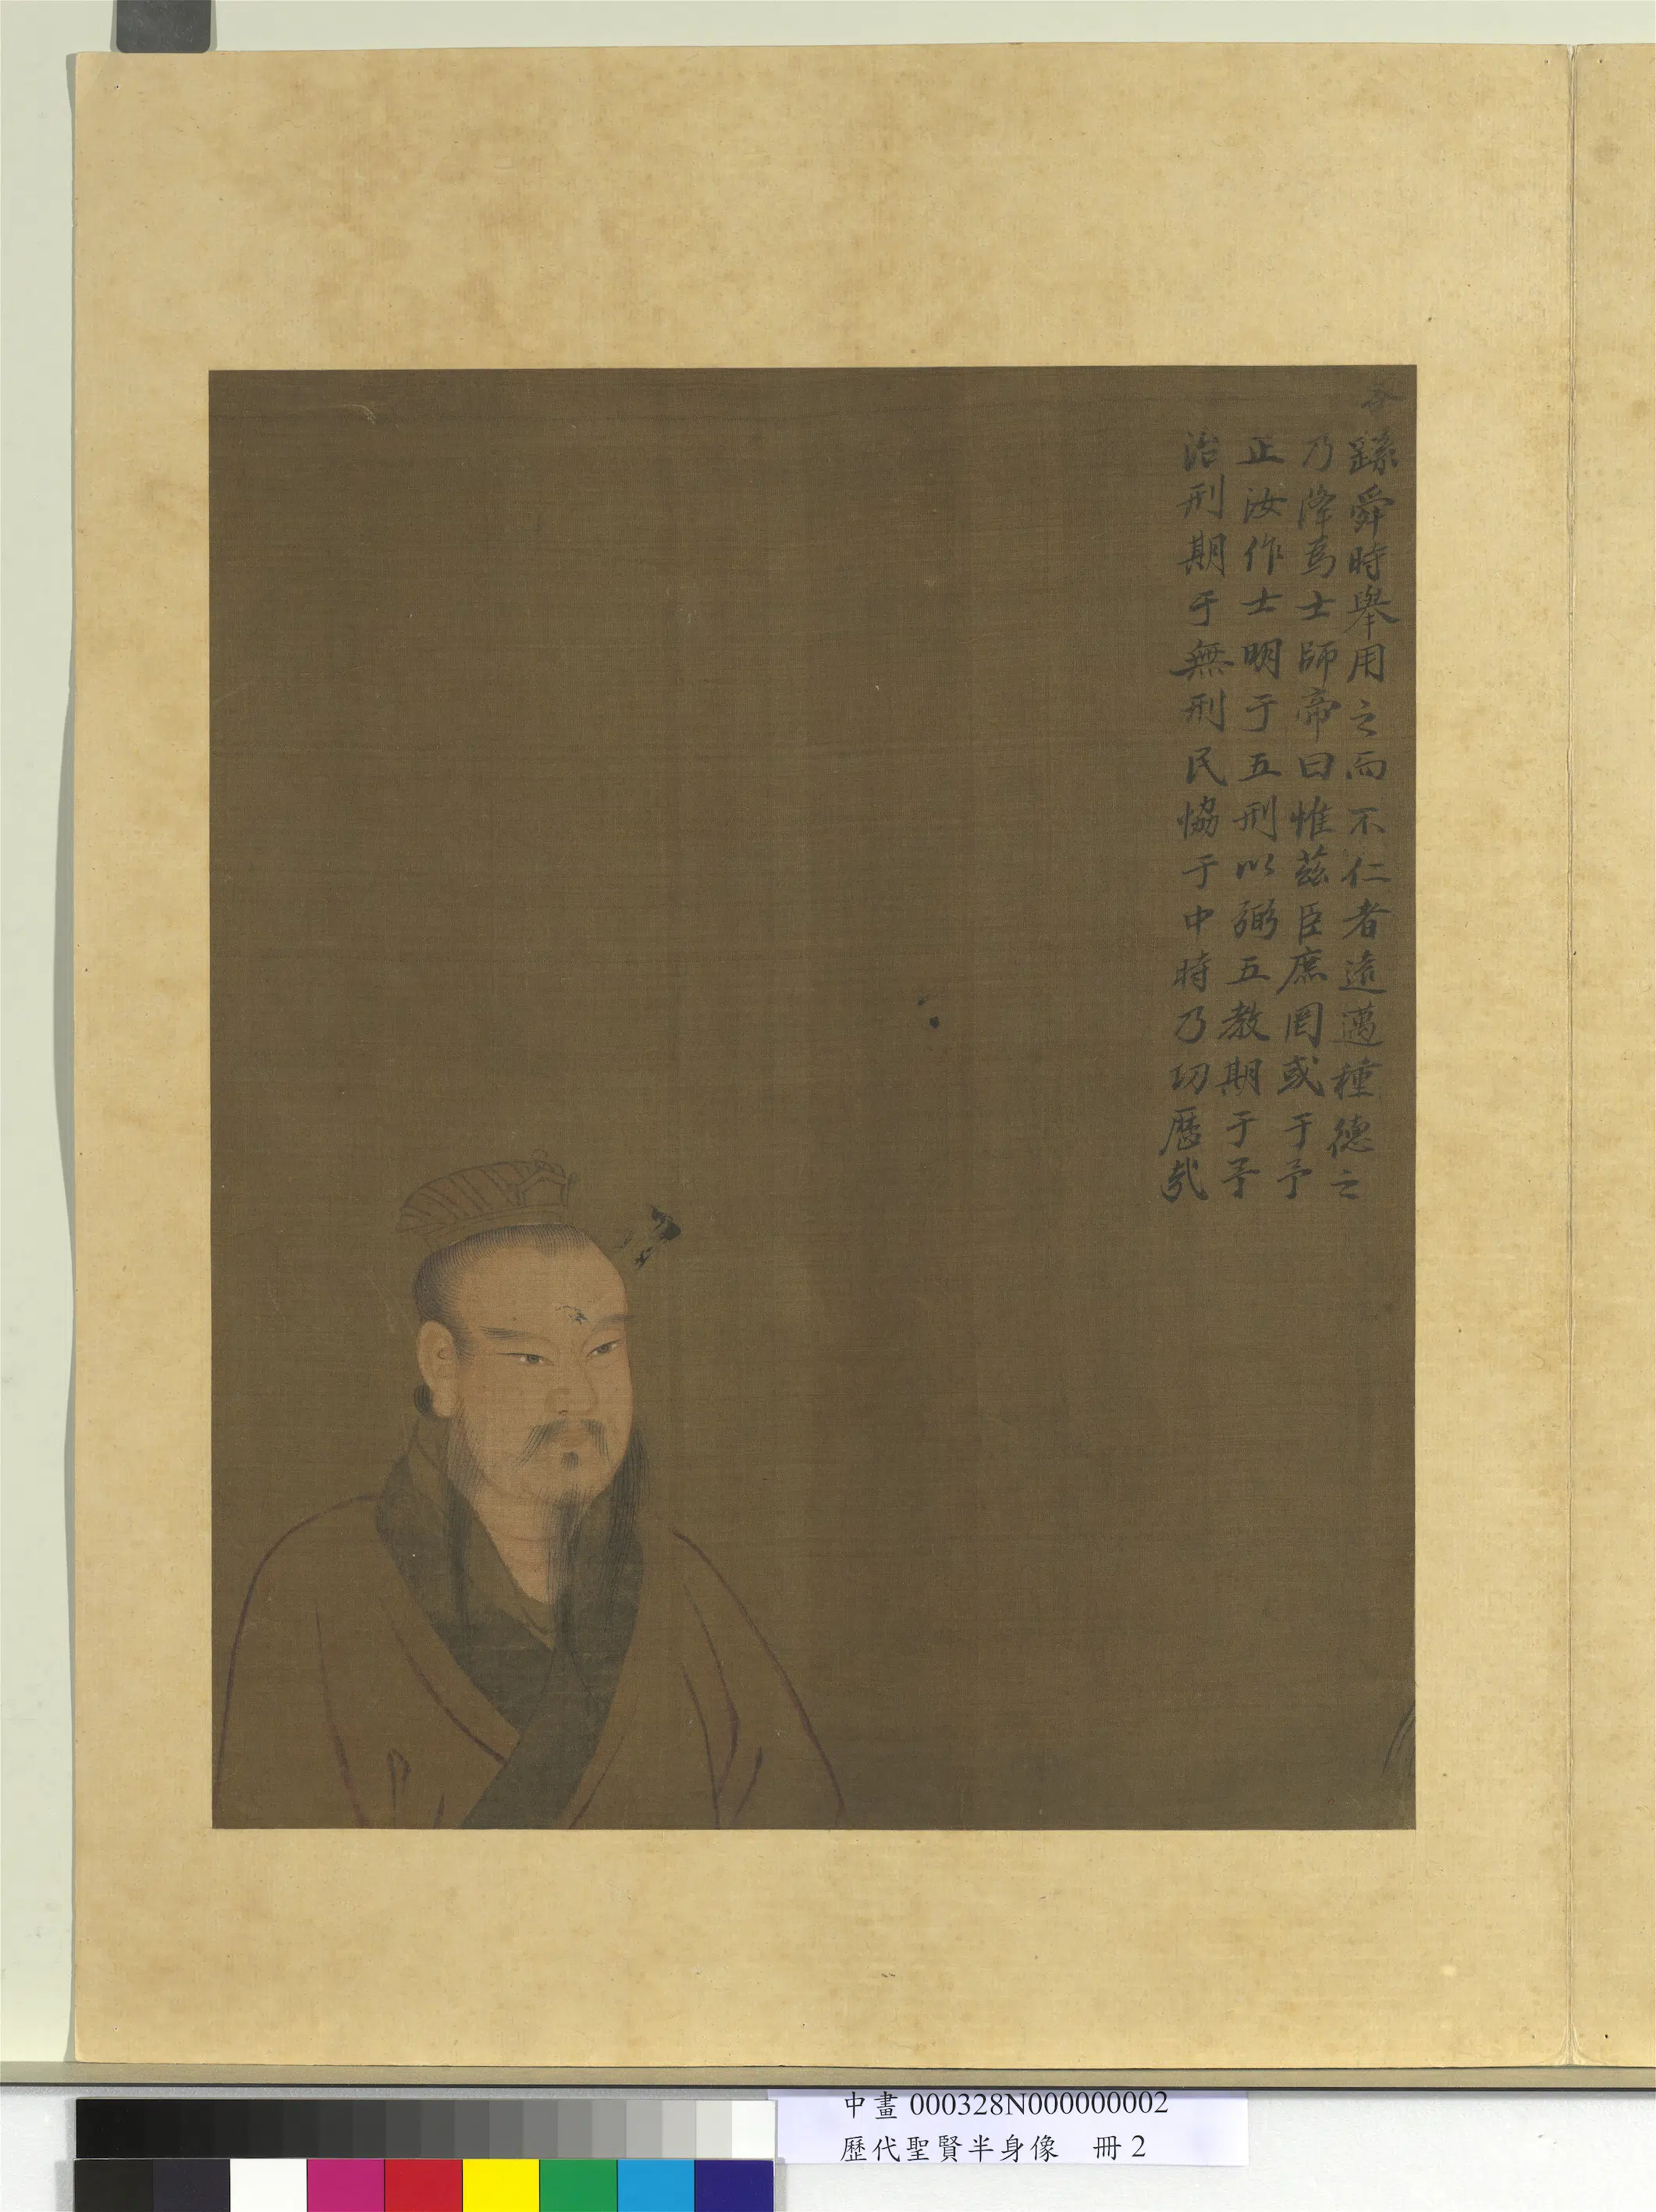 咎
繇舜時舉用之而不仁者遠邁種德之
乃降為士師帝曰惟茲臣庶罔或于予
正汝作士明于五刑以弼五教期于予
治刑期于無刑民協于中時乃功懋哉
中畫000328N000000002
歷代聖賢半身像 冊2